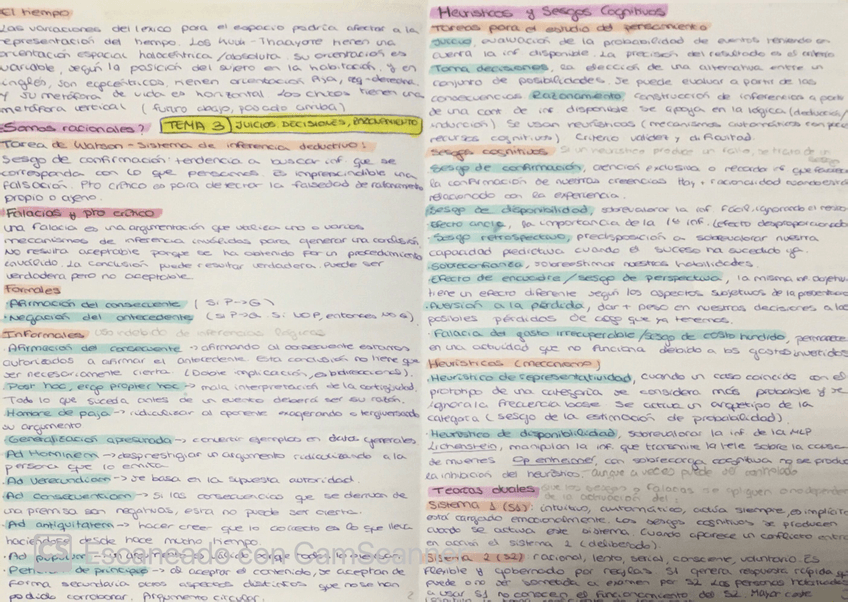 El tiempo
Las variaciones del léxico para el espacio podría afectar a la
representación del tiempo. Los Kuuk-Thaayorre tienen una
orientación espacial holocéntrica/absoluta. Su orientación es
variable, según la posición del sujeto en la habitación, y en
inglés, son egocéntricos tienen orientación fija,
y su metáfora de vida es horizontal. Los chinos tienen una
metáfora vertical (futuro abajo, pasado arriba)
Somos racionales? TEMA 3 JUICIOS, DECISIONES, RAZONAMIENTO
Tarea de Watson - Sistema de inferencia deductivo:
Sesgo de confirmación: tendencia a buscar inf. que se
corresponda con lo que pensamos. Es imprescindible una
falsación. Pto crítico es para detectar la falsedad de razonamiento
propio o ajeno.
Falacias y pto crítico
una falacia es una argumentación que utiliza uno o varios
mecanismos de inferencia inválidos para generar una conclusión
No resulta aceptable porque se ha obtenido por un procedimiento
inválido. La conclusión puede resultar verdadera. Puede ser
verdadera pero no aceptable.
Formales
·Afirmación del consecuente (Si P→Q)
·Negación del antecedente (Si P→Q. Si no P, entonces no Q).
Informales uso indebido de inferencias lógicas
·Afirmación del consecuente → afirmando el consecuente estamos
autorizados a afirmar el antecedente. Esta conclusión no tiene que
ser necesariamente cierta. (Doble implicación, es bidireccional).
·Post hoc, ergo propter hoc → mala interpretación de la contigüidad.
Todo lo que suceda antes de un evento deberá ser su razón.
·Hombre de paja → ridiculizar al oponente exagerando o tergiversando
su argumento
·Generalización apresurada → convertir ejemplos en datos generales
·Ad Hominem → desprestigiar un argumento ridiculizando a la
persona que lo emite
·Ad Verecundiam → se basa en la supuesta autoridad.
·Ad consequentiam → si las consecuencias que se derivan de
una premisa son negativas, esta no puede ser cierta.
·Ad antiquitatem → hacer creer que lo correcto es lo que lleva
haciéndose desde hace mucho tiempo.
·Ad populum →
·Petición de principio → al aceptar el contenido, se aceptan de
forma secundaria otros aspectos distintos que no se han
podido corroborar. Argumento circular.
2
CS Escaneado con CamScanner
Heurísticos y Sesgos Cognitivos
Tareas para el estudio del pensamiento
Juicio, evaluación de la probabilidad de eventos teniendo en
cuenta la inf disponible. La precisión del resultado es el criterio
Toma decisiones, la elección de una alternativa entre un
conjunto de posibilidades. Se puede evaluar a partir de las
consecuencias. Razonamiento construcción de inferencias a partir
de una cant de inf disponible se apoya en la lógica (deductiva/
inducción) Se usan heurísticos (mecanismos automáticos con pocos
recursos cognitivos) Criterio validez y dificultad.
Sesgos cognitivos Si un heurístico produce un fallo, se trata de un sesgo
·Sesgo de confirmación, atención exclusiva o recordar inf que favorece
la confirmación de nuestras creencias Hay + racionalidad cuando está
relacionado con la experiencia.
·Sesgo de disponibilidad, sobrevalorar la inf fácil, ignorando el resto
·Efecto ancla, la importancia de la 1ª inf. (efecto desproporcionado)
·Sesgo retrospectivo, predisposición a sobrevalorar nuestra
capacidad predictiva cuando el suceso ha sucedido ya.
·Sobreconfianza, sobreestimar nuestras habilidades.
·Efecto de encuadre/sesgo de perspectiva, la misma inf objetiva
tiene un efecto diferente según los aspectos subjetivos de la presentación
·Aversión a la pérdida, dar + peso en nuestras decisiones a las
posibles pérdidas de algo que ya tenemos.
·Falacia del gasto irrecuperable/sesgo de costo hundido, permanecer
en una actividad que no funciona debido a los gastos invertidos
Heurísticos (mecanismo)
·Heurístico de representatividad, cuando un caso coincide con el
prototipo de una categoría se considera más probable y se
ignora la frecuencia base. Se activa un arquetipo de la
categoría (sesgo de la estimación de probabilidad).
·Heurístico de disponibilidad, sobrevalorar la inf de la MLP
Lichenstein, manipulan la inf que transmite la tele sobre la causa
de muertes. Openheimer, con sobrecarga cognitiva no se produce
la inhibición del heurístico. Aunque a veces puede ser controlado
Teorías duales
Sistema 1 (S1): intuitivo, automático, actúa siempre, es implícito
está cargado emocionalmente. Los sesgos cognitivos se producen
cuando se activa este sistema. Cuando aparece un conflicto entra
en acción el sistema 2 (deliberado).
Sistema 2 (S2) racional, lento, serial, consciente, voluntario. Es
flexible y gobernado por reglas. S1 genera respuesta rápida que
puede o no ser sometida a examen por S2. Las personas habituadas
a usar S1 no conocen el funcionamiento del S2. Mayor coste